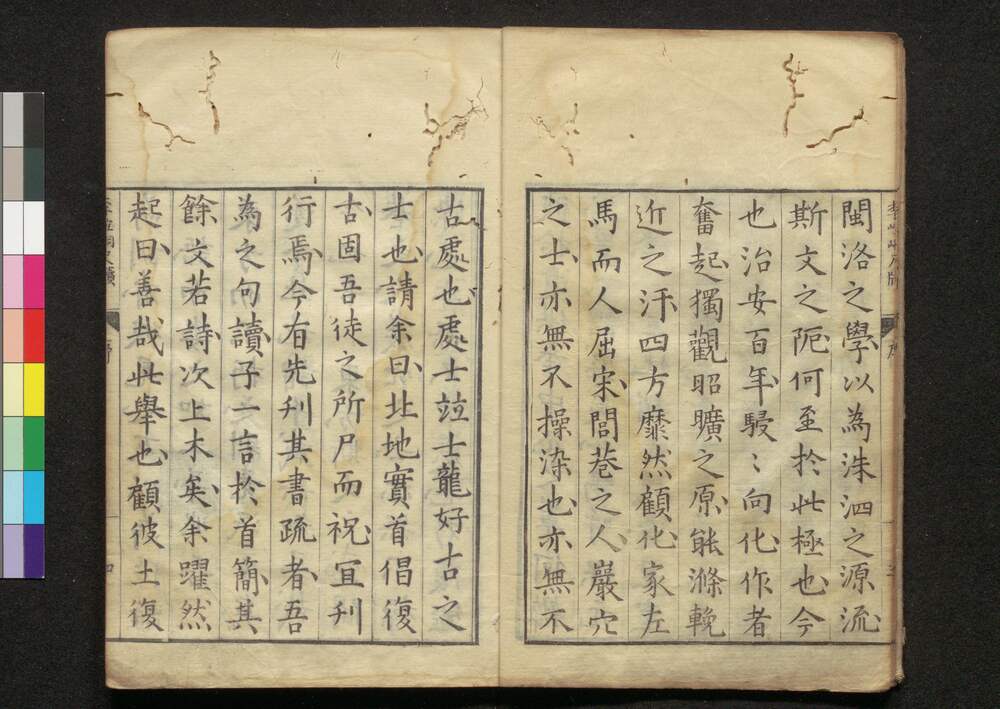 閩洛之學以為洙泗之源流
斯文之阨何至於此極也今
也治安百年駸〻向化作者
奮起獨觀昭曠之原能滌輓
近之汙四方靡然顧化家左
馬而人屈宋閭巷之人巖穴
之士亦無不操染也亦無不
古處也處士竝士龍好古之
士也請余曰北地實首倡復
古固吾徒之所尸而祝宜刋
行焉今有先刋其書疏者吾
為之句讀子一言於首簡其
餘文若詩次上木矣余躍然
起曰善哉此舉也顧彼土復
序